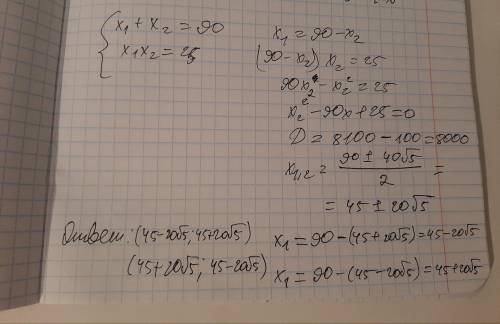 x₁ + x₂ = 90
x₁x₂ = 25
x₁ = 90 - x₂
(90 - x₂) x₂ = 25
90x₂ - x₂² = 25
x₂² - 90x + 25 = 0
D = 8100 - 100 = 8000
x₁,₂ = (90 ± 40√5)/2 =
= 45 ± 20√5
x₁ = 90 - (45 + 20√5) = 45 - 20√5
x₁ = 90 - (45 - 20√5) = 45 + 20√5
Ответ: (45 - 20√5; 45 + 20√5)
(45 + 20√5; 45 - 20√5)